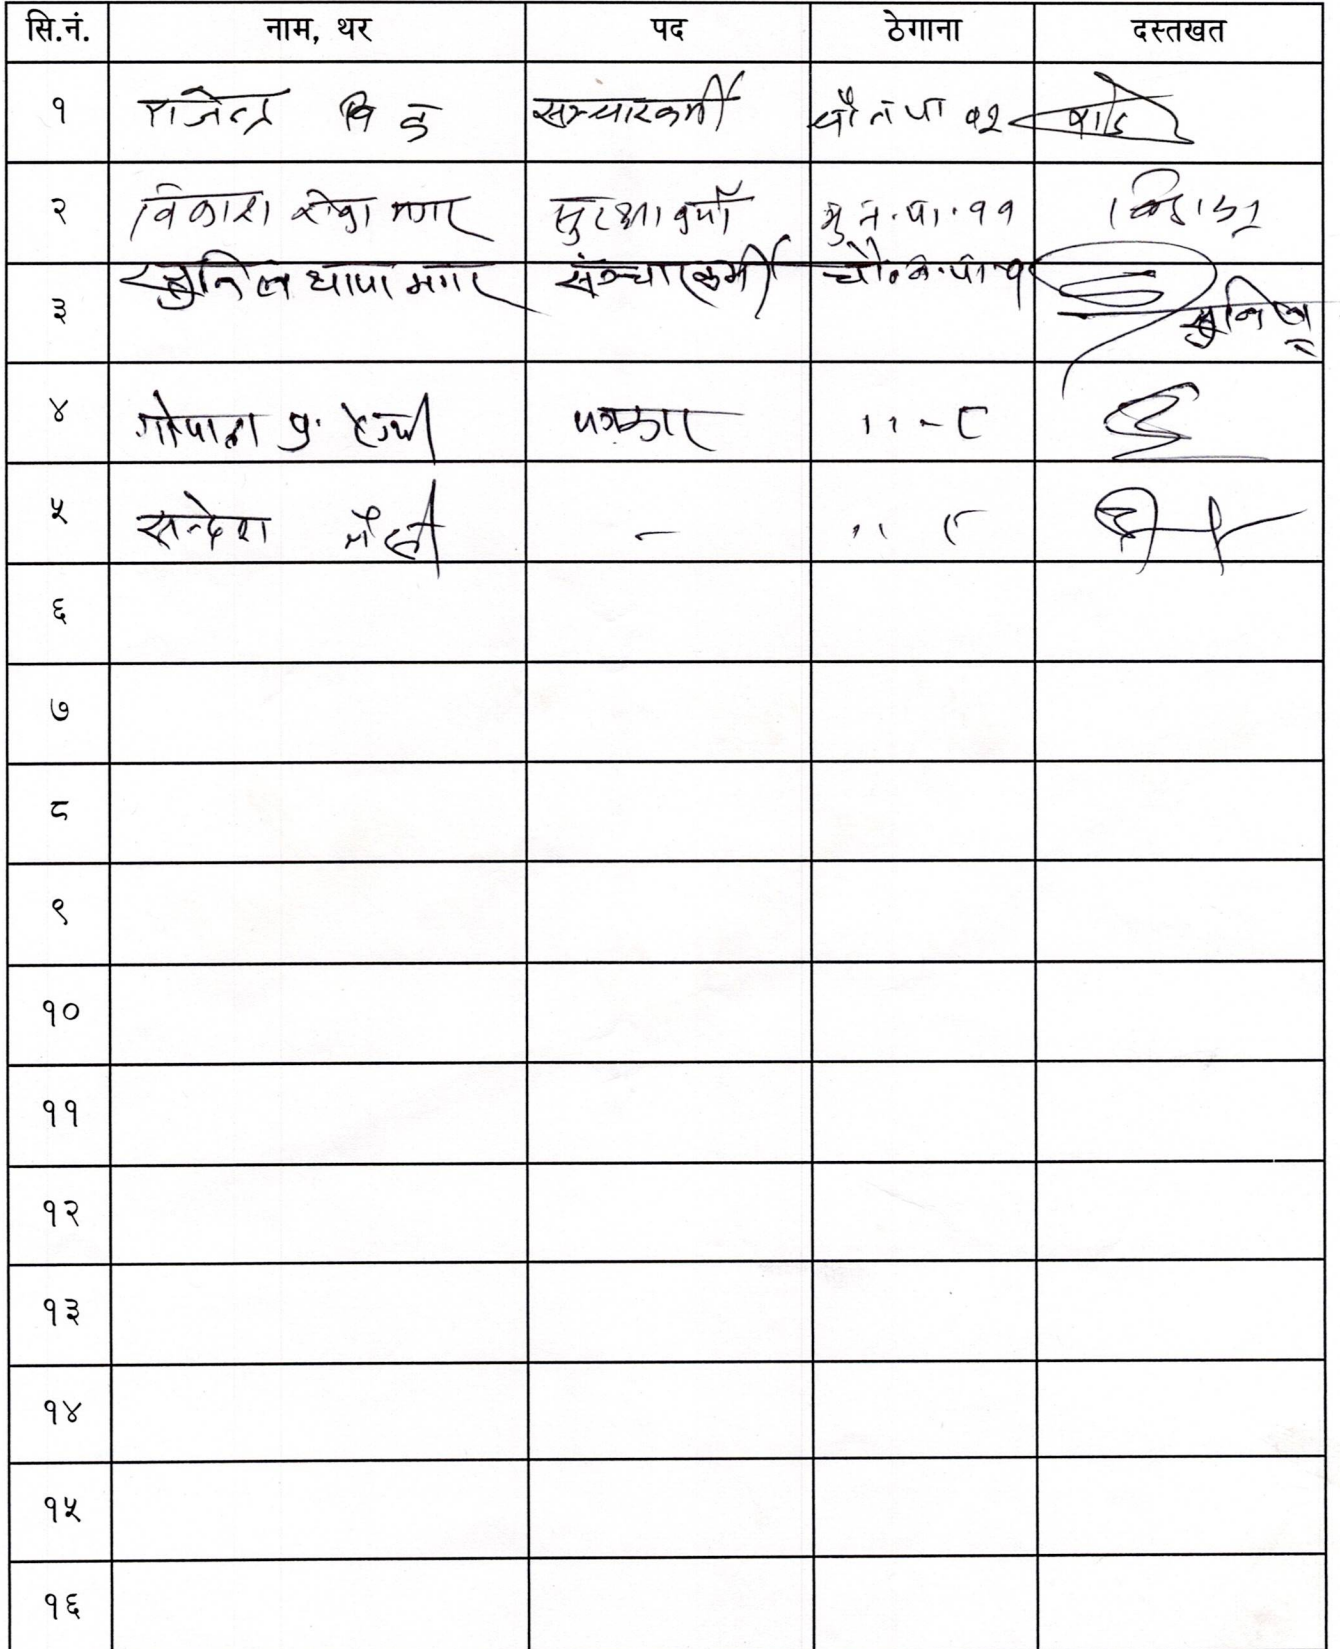 सि.नं. नाम, थर पद ठेगाना दस्तखत
१ राजेन्द्र वि क सञ्चारकर्मी चौ न पा १२
२ विकाश रोका मगर सुरक्षाकर्मी भु.न.पा.११
३ सुनिल थापा मगर संञ्चारकर्मी चौ.न.पा. सुनिल
४ गोपाल प्र. पत्रकार ,, - ८
५ सन्देश - ,,
६
७
८
९
१०
११
१२
१३
१४
१५
१६